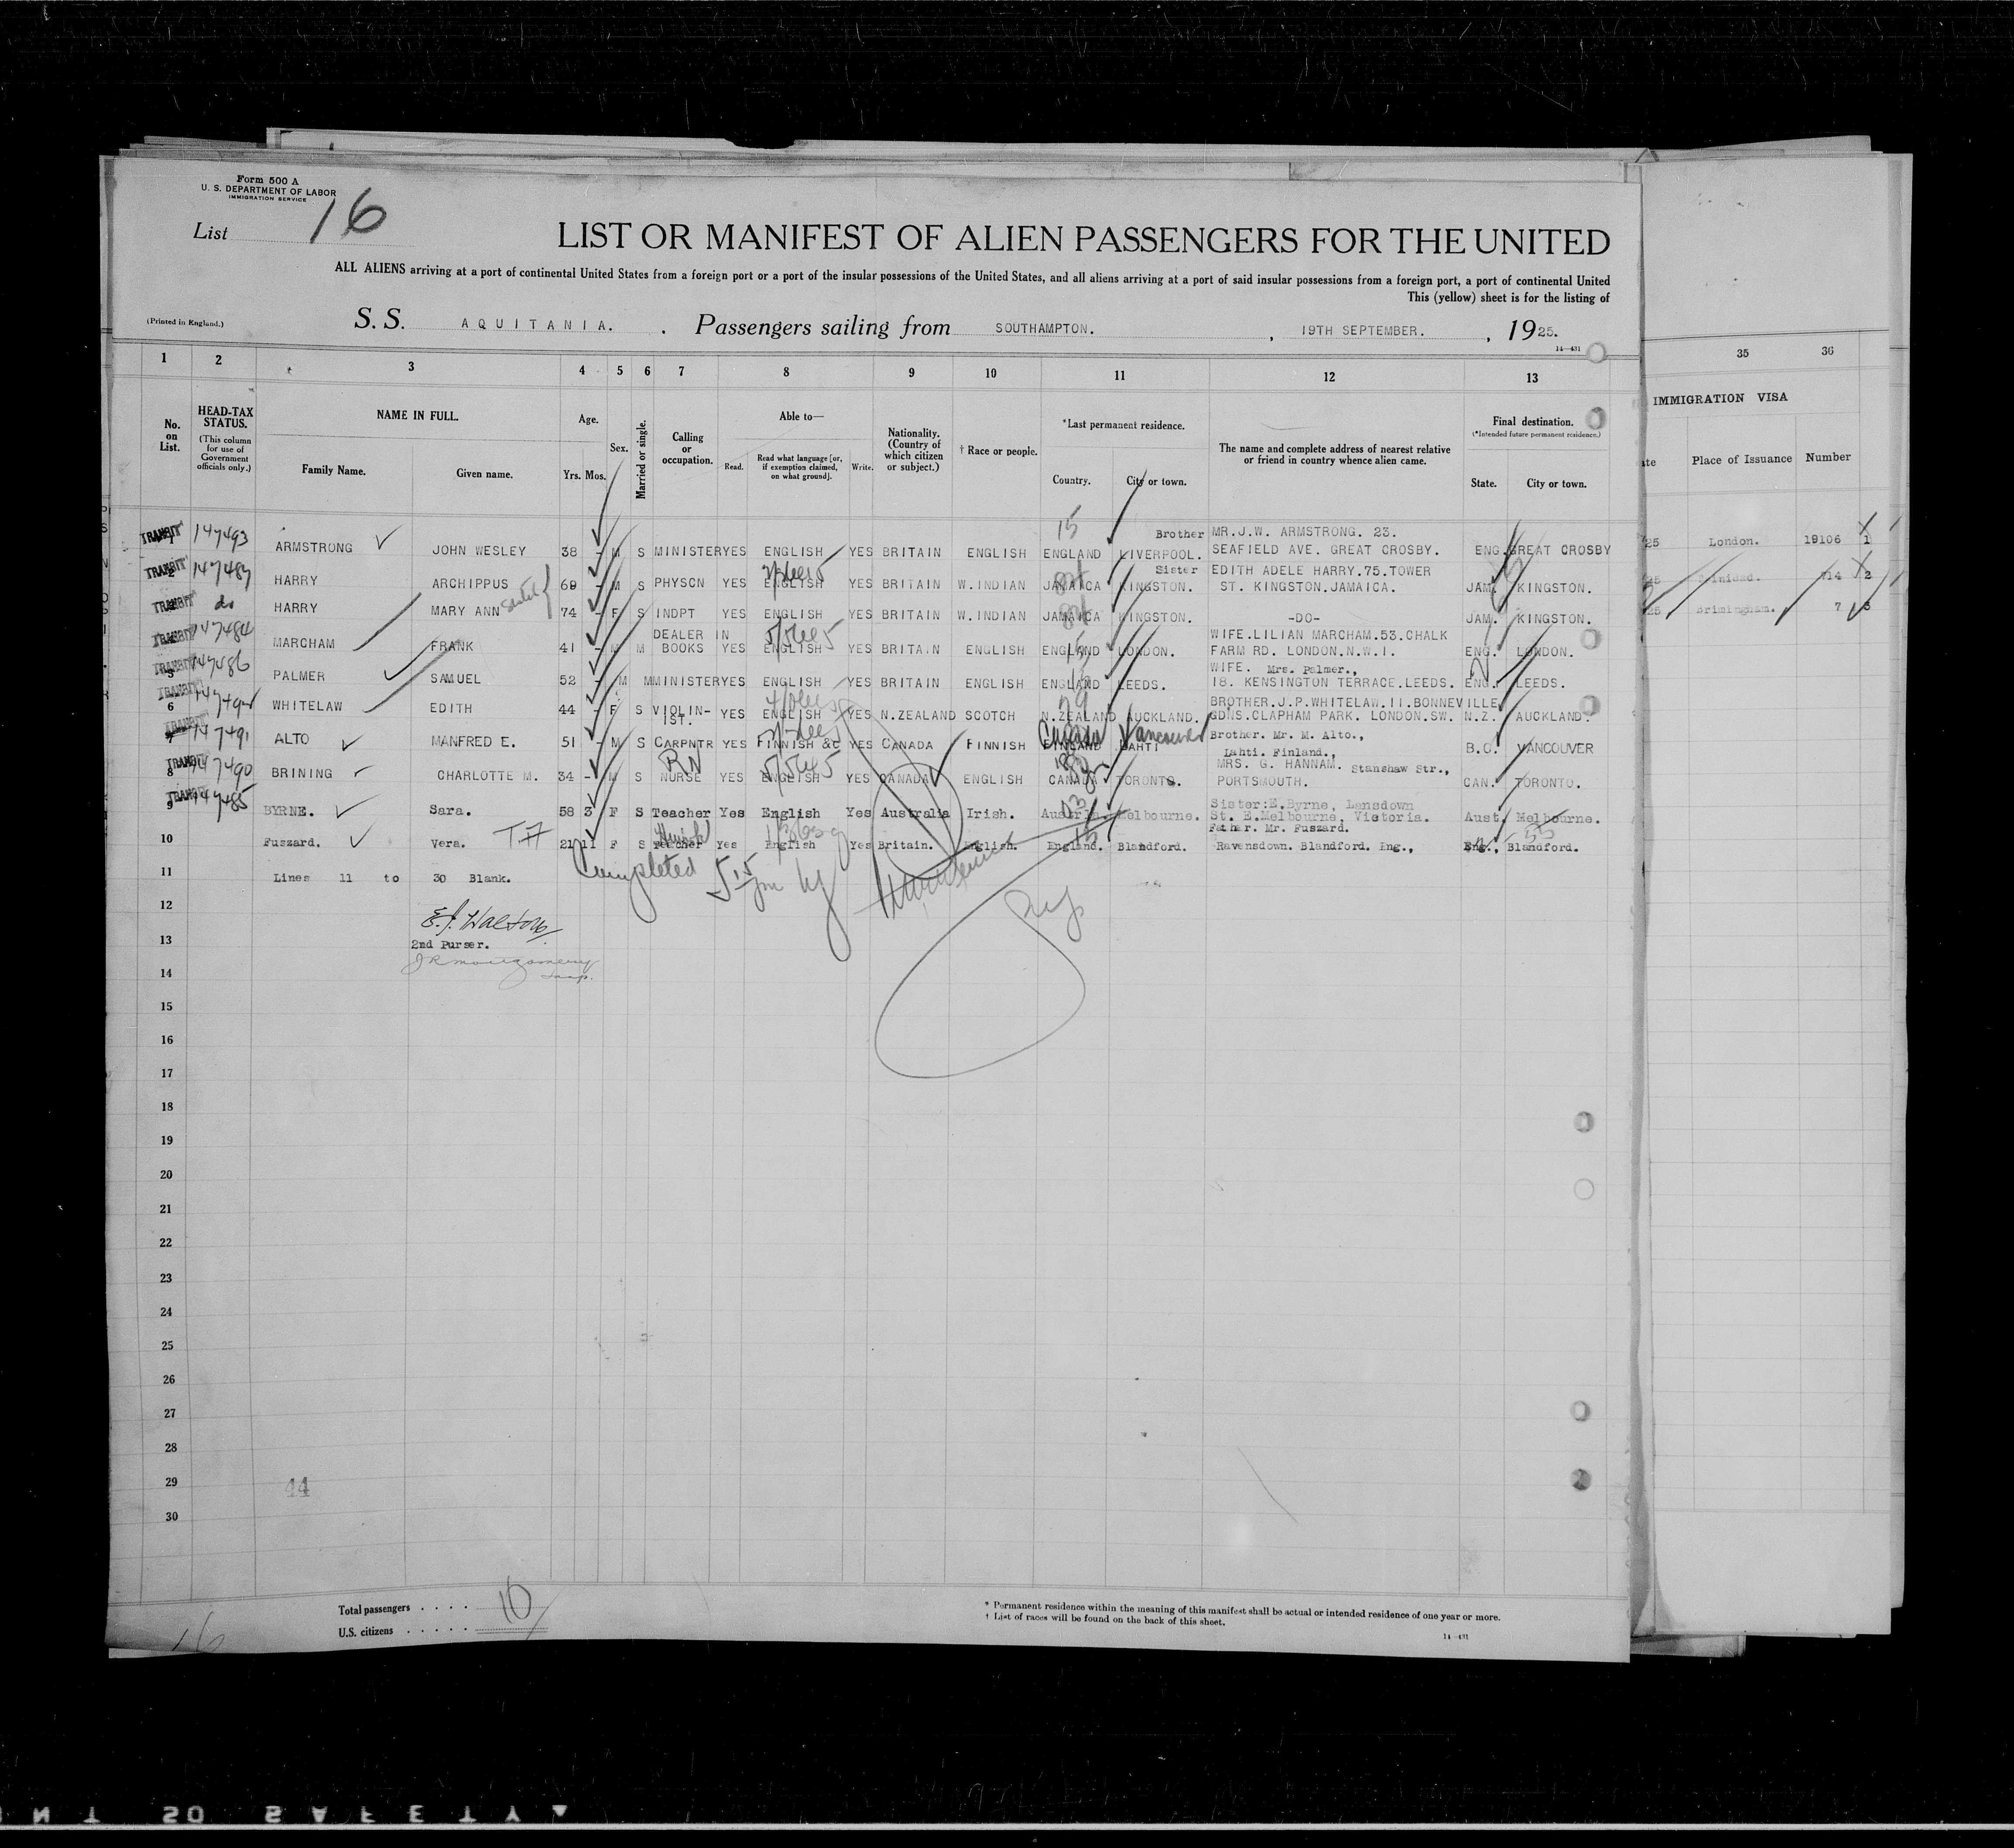 Form 500 A
U. S. DEPARTMENT OF LABOR
IMMIGRATION SERVICE
List 16
LIST OR MANIFEST OF ALIEN PASSENGERS FOR THE UNITED
ALL ALIENS arriving at a port of continental United States from a foreign port or a port of the insular possessions of the United States, and all aliens arriving at a port of said insular possessions from a foreign port, a port of continental United
This (yellow) sheet is for the listing of
(Printed in England.)
S. S. AQUITANIA. . Passengers sailing from SOUTHAMPTON. , 19TH SEPTEMBER. , 1925.
14—431
1 2 3 4 5 6 7 8 9 10 11 12 13 35 36
No. on List.
HEAD-TAX STATUS.
(This column for use of Government officials only.)
NAME IN FULL.
Family Name. Given name.
Age.
Yrs. Mos.
Sex.
Married or single.
Calling or occupation.
Able to—
Read. Read what language [or, if exemption claimed, on what ground]. Write.
Nationality. (Country of which citizen or subject.)
† Race or people.
*Last permanent residence.
Country. City or town.
The name and complete address of nearest relative or friend in country whence alien came.
Final destination.
(*Intended future permanent residence.)
State. City or town.
IMMIGRATION VISA
Place of Issuance Number
TRANSIT 147493 ARMSTRONG JOHN WESLEY 38 - M S MINISTER YES ENGLISH YES BRITAIN ENGLISH ENGLAND LIVERPOOL. Brother MR.J.W. ARMSTRONG. 23. SEAFIELD AVE. GREAT CROSBY. ENG. GREAT CROSBY 25 London. 19106 1
TRANSIT 2 147487 HARRY ARCHIPPUS 69 - M S PHYSCN YES ENGLISH YES BRITAIN W.INDIAN JAMAICA KINGSTON. Sister EDITH ADELE HARRY.75.TOWER ST. KINGSTON.JAMAICA. JAM. KINGSTON. 25 Trinidad. 2
TRANSIT do HARRY MARY ANN 74 - F S INDPT YES ENGLISH YES BRITAIN W.INDIAN JAMAICA KINGSTON. -DO- JAM. KINGSTON. 25 Brimingham. 7 3
TRANSIT 147484 MARCHAM FRANK 41 - M M DEALER IN BOOKS YES ENGLISH YES BRITAIN ENGLISH ENGLAND LONDON. WIFE.LILIAN MARCHAM.53.CHALK FARM RD. LONDON.N.W.I. ENG. LONDON.
TRANSIT 5 147486 PALMER SAMUEL 52 - M M MINISTER YES ENGLISH YES BRITAIN ENGLISH ENGLAND LEEDS. WIFE. Mrs. Palmer., 18. KENSINGTON TERRACE.LEEDS. ENG. LEEDS.
TRANSIT 6 WHITELAW EDITH 44 - F S VIOLIN-IST. YES ENGLISH YES N.ZEALAND SCOTCH N.ZEALAND AUCKLAND. BROTHER.J.P.WHITELAW.II.BONNEVILLE GDNS.CLAPHAM PARK. LONDON.SW. N.Z. AUCKLAND.
TRANSIT 147491 ALTO MANFRED E. 51 - M S CARPNTR YES FINNISH &C YES CANADA FINNISH FINLAND LAHTI Canada Vancouver Brother. Mr. M. Alto., Lahti. Finland., B.C. VANCOUVER
TRANSIT 8 147490 BRINING CHARLOTTE M. 34 - M S NURSE RN YES ENGLISH YES CANADA ENGLISH CANADA TORONTO. MRS. G. HANNAM. Stanshaw Str., PORTSMOUTH. CAN. TORONTO.
TRANSIT 9 147485 BYRNE. Sara. 58 3 F S Teacher Yes English Yes Australia Irish. Melbourne. Sister:E.Byrne, Lansdown St. E.Melbourne, Victoria. Aust. Melbourne.
10 Fuszard. Vera. 21 11 F S Teacher Yes English Yes Britain. English. England. Blandford. Father. Mr. Fuszard. Ravensdown. Blandford. Eng., Eng., Blandford.
11 Lines 11 to 30 Blank.
Completed
12
E.J. Walton
13 2nd Purser.
J R Montgomery
Insp.
14
15
16
17
18
19
20
21
22
23
24
25
26
27
28
29
44
30
Total passengers . . . . 10
U.S. citizens . . . . .
* Permanent residence within the meaning of this manifest shall be actual or intended residence of one year or more.
† List of races will be found on the back of this sheet.
14—431
16